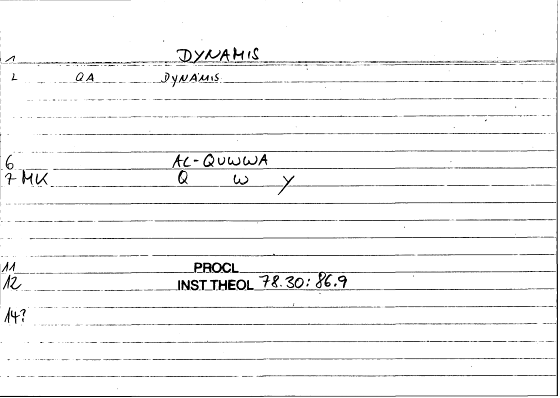 1 DYNAMIS
2 QA DYNAMIS
6 AL-QUWWA
7 MK Q W Y
11 PROCL
12 INST THEOL 78.30: 86.9
14?